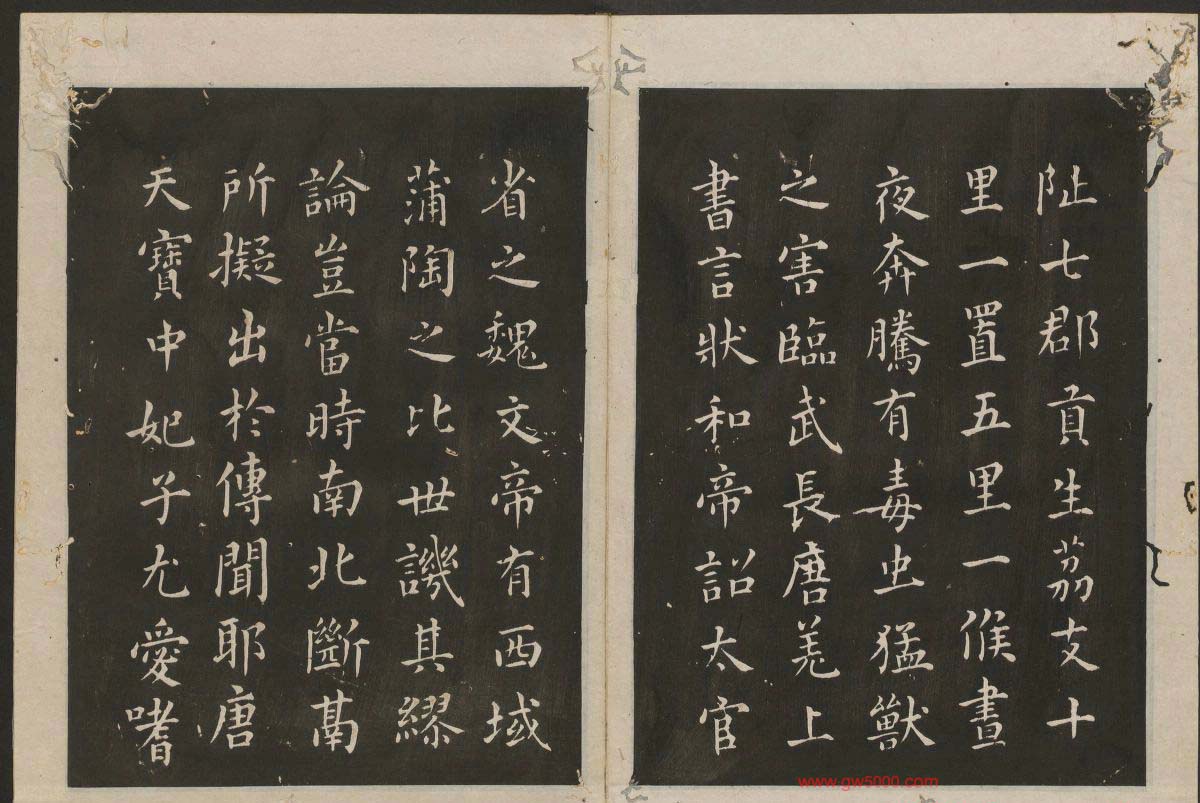 阯七郡貢生荔支十
里一置五里一候晝
夜奔騰有毒虫猛獸
之害臨武長唐羌上
書言狀和帝詔太官
省之魏文帝有西域
蒲陶之比世譏其繆
論豈當時南北斷鬲
所擬出於傳聞耶唐
天寶中妃子尤愛嗜
www.gw5000.com